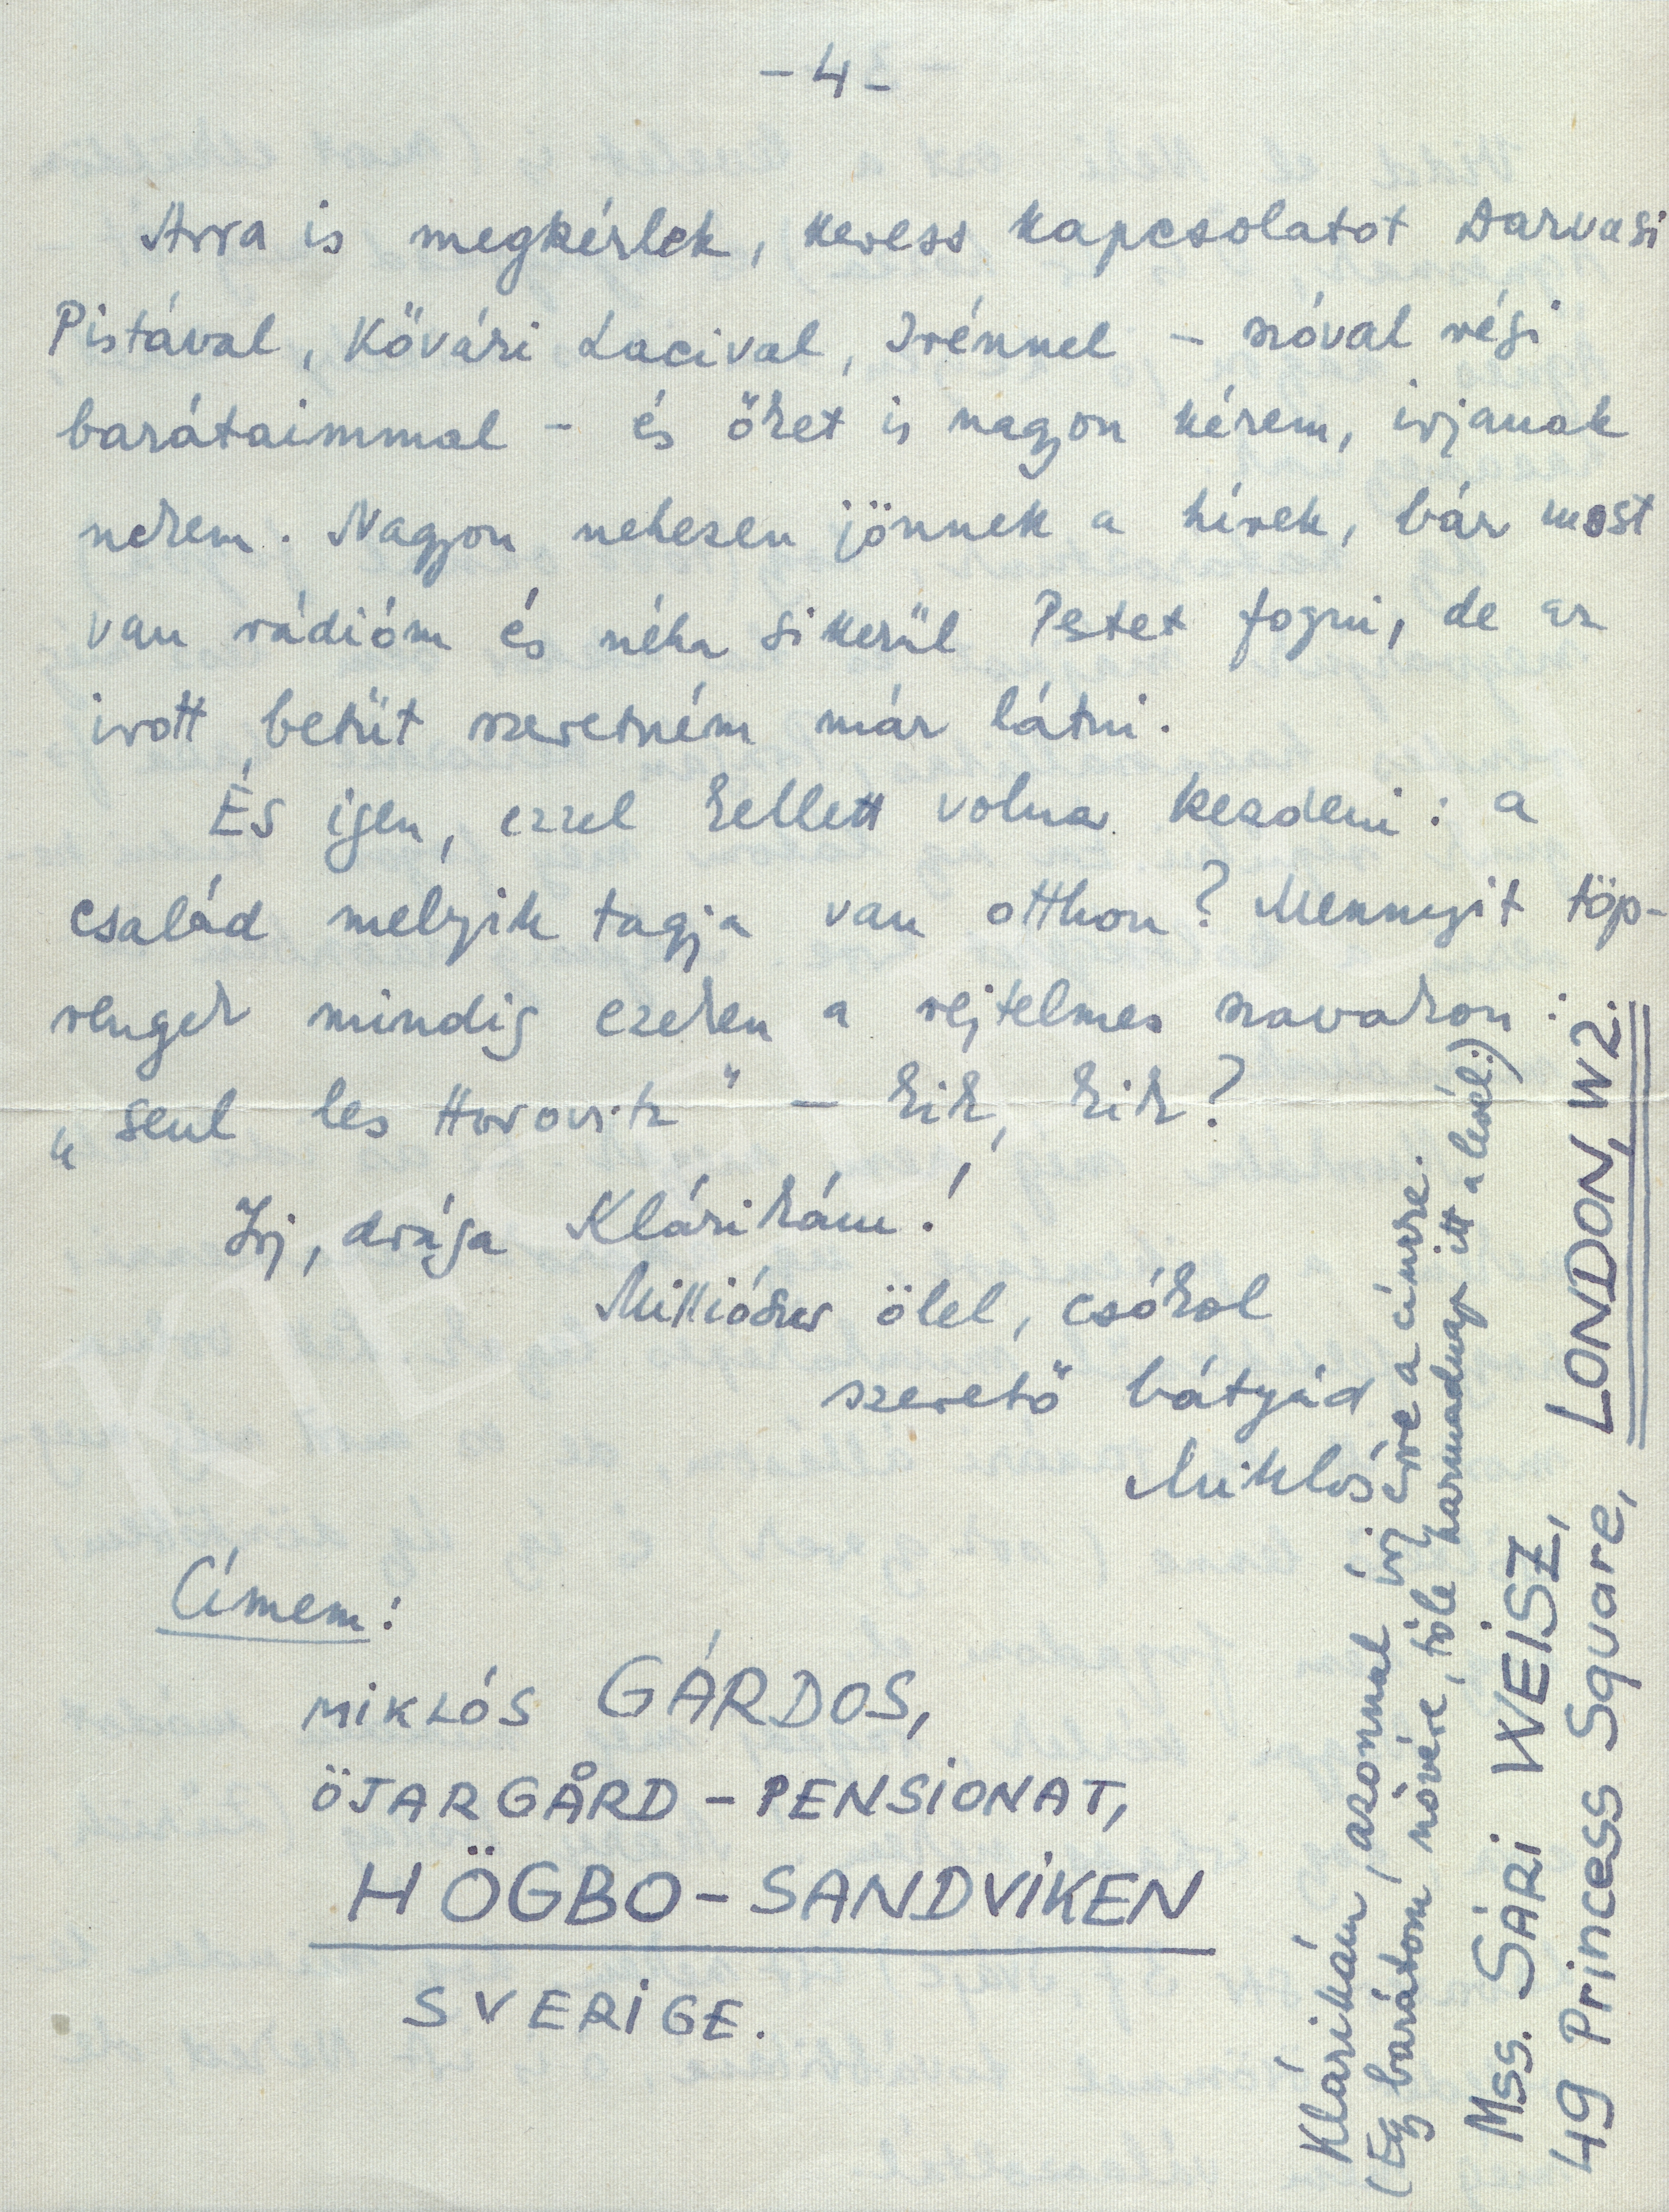 -4-
Arra is megkérlek, keress kapcsolatot Darvasi
Pistával, Kővári Lacival, Irénnel - szóval régi
barátaimmal - és őket is nagyon kérem, irjanak
nekem. Nagyon nehezen jönnek a hírek, bár most
van rádióm és néha sikerül Pestet fogni, de az
irott betűt szeretném már látni.
És igen, ezzel kellett volna kezdeni: a
család melyik tagja van otthon? Mennyit töp-
rengek mindig ezeken a rejtelmes szavakon:
„seul les Horovitz" - kik, kik?
Irj, drága Klárikám!
Milliószor ölel, csókol
szerető bátyád
Miklós
Címem:
MIKLÓS GÁRDOS,
ÖJARGÅRD-PENSIONAT,
HÖGBO-SANDVIKEN
SVERIGE.
Klárikám, azonnal írj erre a címre.
(Egy barátom nővére, tőle harmadnap itt a levél:)
Mss. SÁRI WEISZ,
49 Princess Square, LONDON, W2.